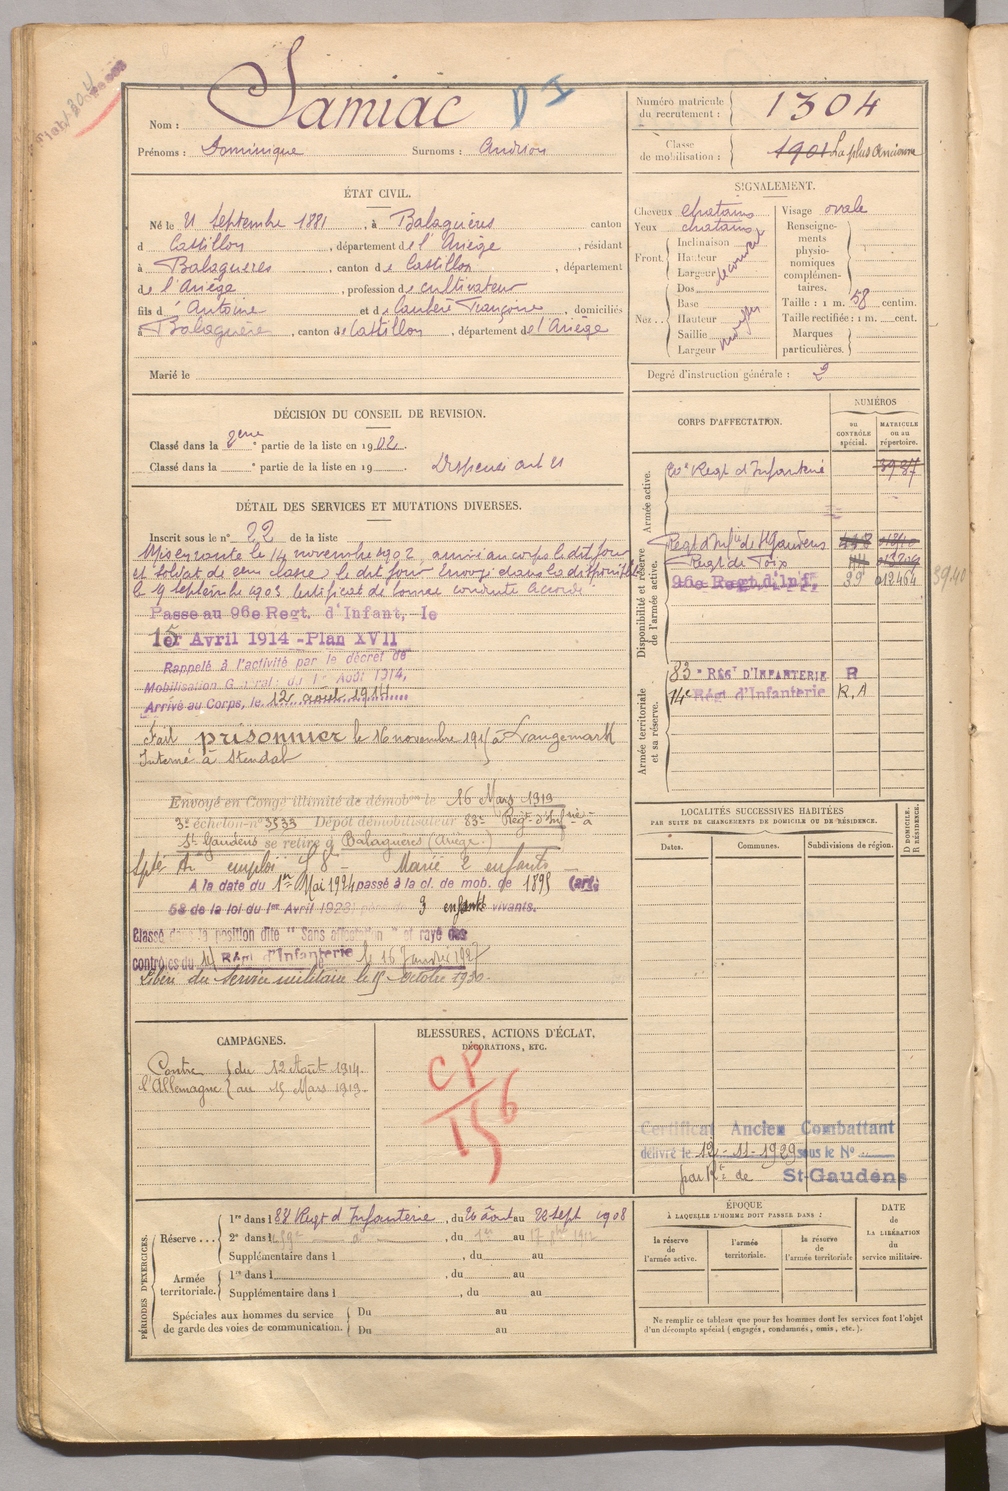 Nom : Samiac D I
Prénoms : Dominique Surnoms : Andrion
Numéro matricule du recrutement : 1304
Classe de mobilisation : 1901 La plus ancienne
ÉTAT CIVIL.
Né le 21 Septembre 1881, à Balaguères canton
d Castillon, département de l'Ariège, résidant
à Balaguères, canton de Castillon, département
de l'Ariège, profession de cultivateur
fils d' Antoine et de Françoise, domiciliés
à Balaguères, canton de Castillon, département de l'Ariège
Marié le
SIGNALEMENT.
Cheveux chatains
Yeux chatains
Front. Inclinaison
Hauteur découvert
Largeur
Nez Dos
Base
Hauteur moyen
Saillie
Largeur
Visage ovale
Renseignements physionomiques complémentaires.
Taille : 1 m. 58 centim.
Taille rectifiée : 1 m. cent.
Marques particulières.
Degré d'instruction générale : 2
DÉCISION DU CONSEIL DE REVISION.
Classé dans la 2eme partie de la liste en 1902.
Classé dans la e partie de la liste en 19 . Dispensé art 21
CORPS D'AFFECTATION.
NUMÉROS
au CONTRÔLE spécial.
MATRICULE ou au répertoire.
Armée active.
Regt d'Infanterie
Disponibilité et réserve de l'armée active.
Regt d'Infie de St Gaudens
Regt de Foix
96e Regt. d'Inf. 012464
Armée territoriale et sa réserve.
83e RÉGt D'INFANTERIE R
14e Régt d'Infanterie R.A
DÉTAIL DES SERVICES ET MUTATIONS DIVERSES.
Inscrit sous le n° 22 de la liste
Mis en route le 14 novembre 1902, arrivé au corps le dit jour
et soldat de 2eme classe le dit jour Envoyé dans la disponibilité
le 19 septembre 1903 Certificat de bonne conduite accordé
Passé au 96e Regt. d'Infant, le
15 Avril 1914 - Plan XVII
Rappelé à l'activité par le décret de
Mobilisation Générale du 1er Août 1914,
Arrivé au Corps, le 12 août 1914
Fait prisonnier le 16 novembre 191 à Langemark
Interné à Stendal
Envoyé en Congé illimité de démobon le 16 Mars 1919
3e échelon n° 3533 Dépôt démobilisateur 83e Régt d'Infrie à
St Gaudens se retire à Balaguères (Ariège.)
Marié 2 enfants
A la date du 1er Mai 1924 passé à la cl. de mob. de 1895 (art.
58 de la loi du 1er Avril 1923) 3 enfants vivants.
Classé dans la position dite "Sans affectation" et rayé des
contrôles du 14 Régt d'Infanterie le 16 Janvier 1927
Libéré du service militaire le 15 octobre 1930.
LOCALITÉS SUCCESSIVES HABITÉES
PAR SUITE DE CHANGEMENTS DE DOMICILE OU DE RÉSIDENCE.
D DOMICILE. R RÉSIDENCE.
Dates. Communes. Subdivisions de région.
Certificat Ancien Combattant
délivré le 12-11-1929 sous le N°
par de St-Gaudens
CAMPAGNES.
Contre du 12 Août 1914.
l'Allemagne au 15 Mars 1919.
BLESSURES, ACTIONS D'ÉCLAT,
DÉCORATIONS, ETC.
CP
156
PÉRIODES D'EXERCICES.
Réserve... 1re dans l 83 Regt d'Infanterie, du 26 août au 22 sept 1908
2e dans l , du 1er au 17 1912
Supplémentaire dans l , du au
Armée territoriale. 1re dans l , du au
Supplémentaire dans l , du au
Spéciales aux hommes du service de garde des voies de communication. Du au
Du au
ÉPOQUE
À LAQUELLE L'HOMME DOIT PASSER DANS :
la réserve de l'armée active.
l'armée territoriale.
la réserve de l'armée territoriale
DATE de LA LIBÉRATION du service militaire.
Ne remplir ce tableau que pour les hommes dont les services font l'objet
d'un décompte spécial (engagés, condamnés, omis, etc.).